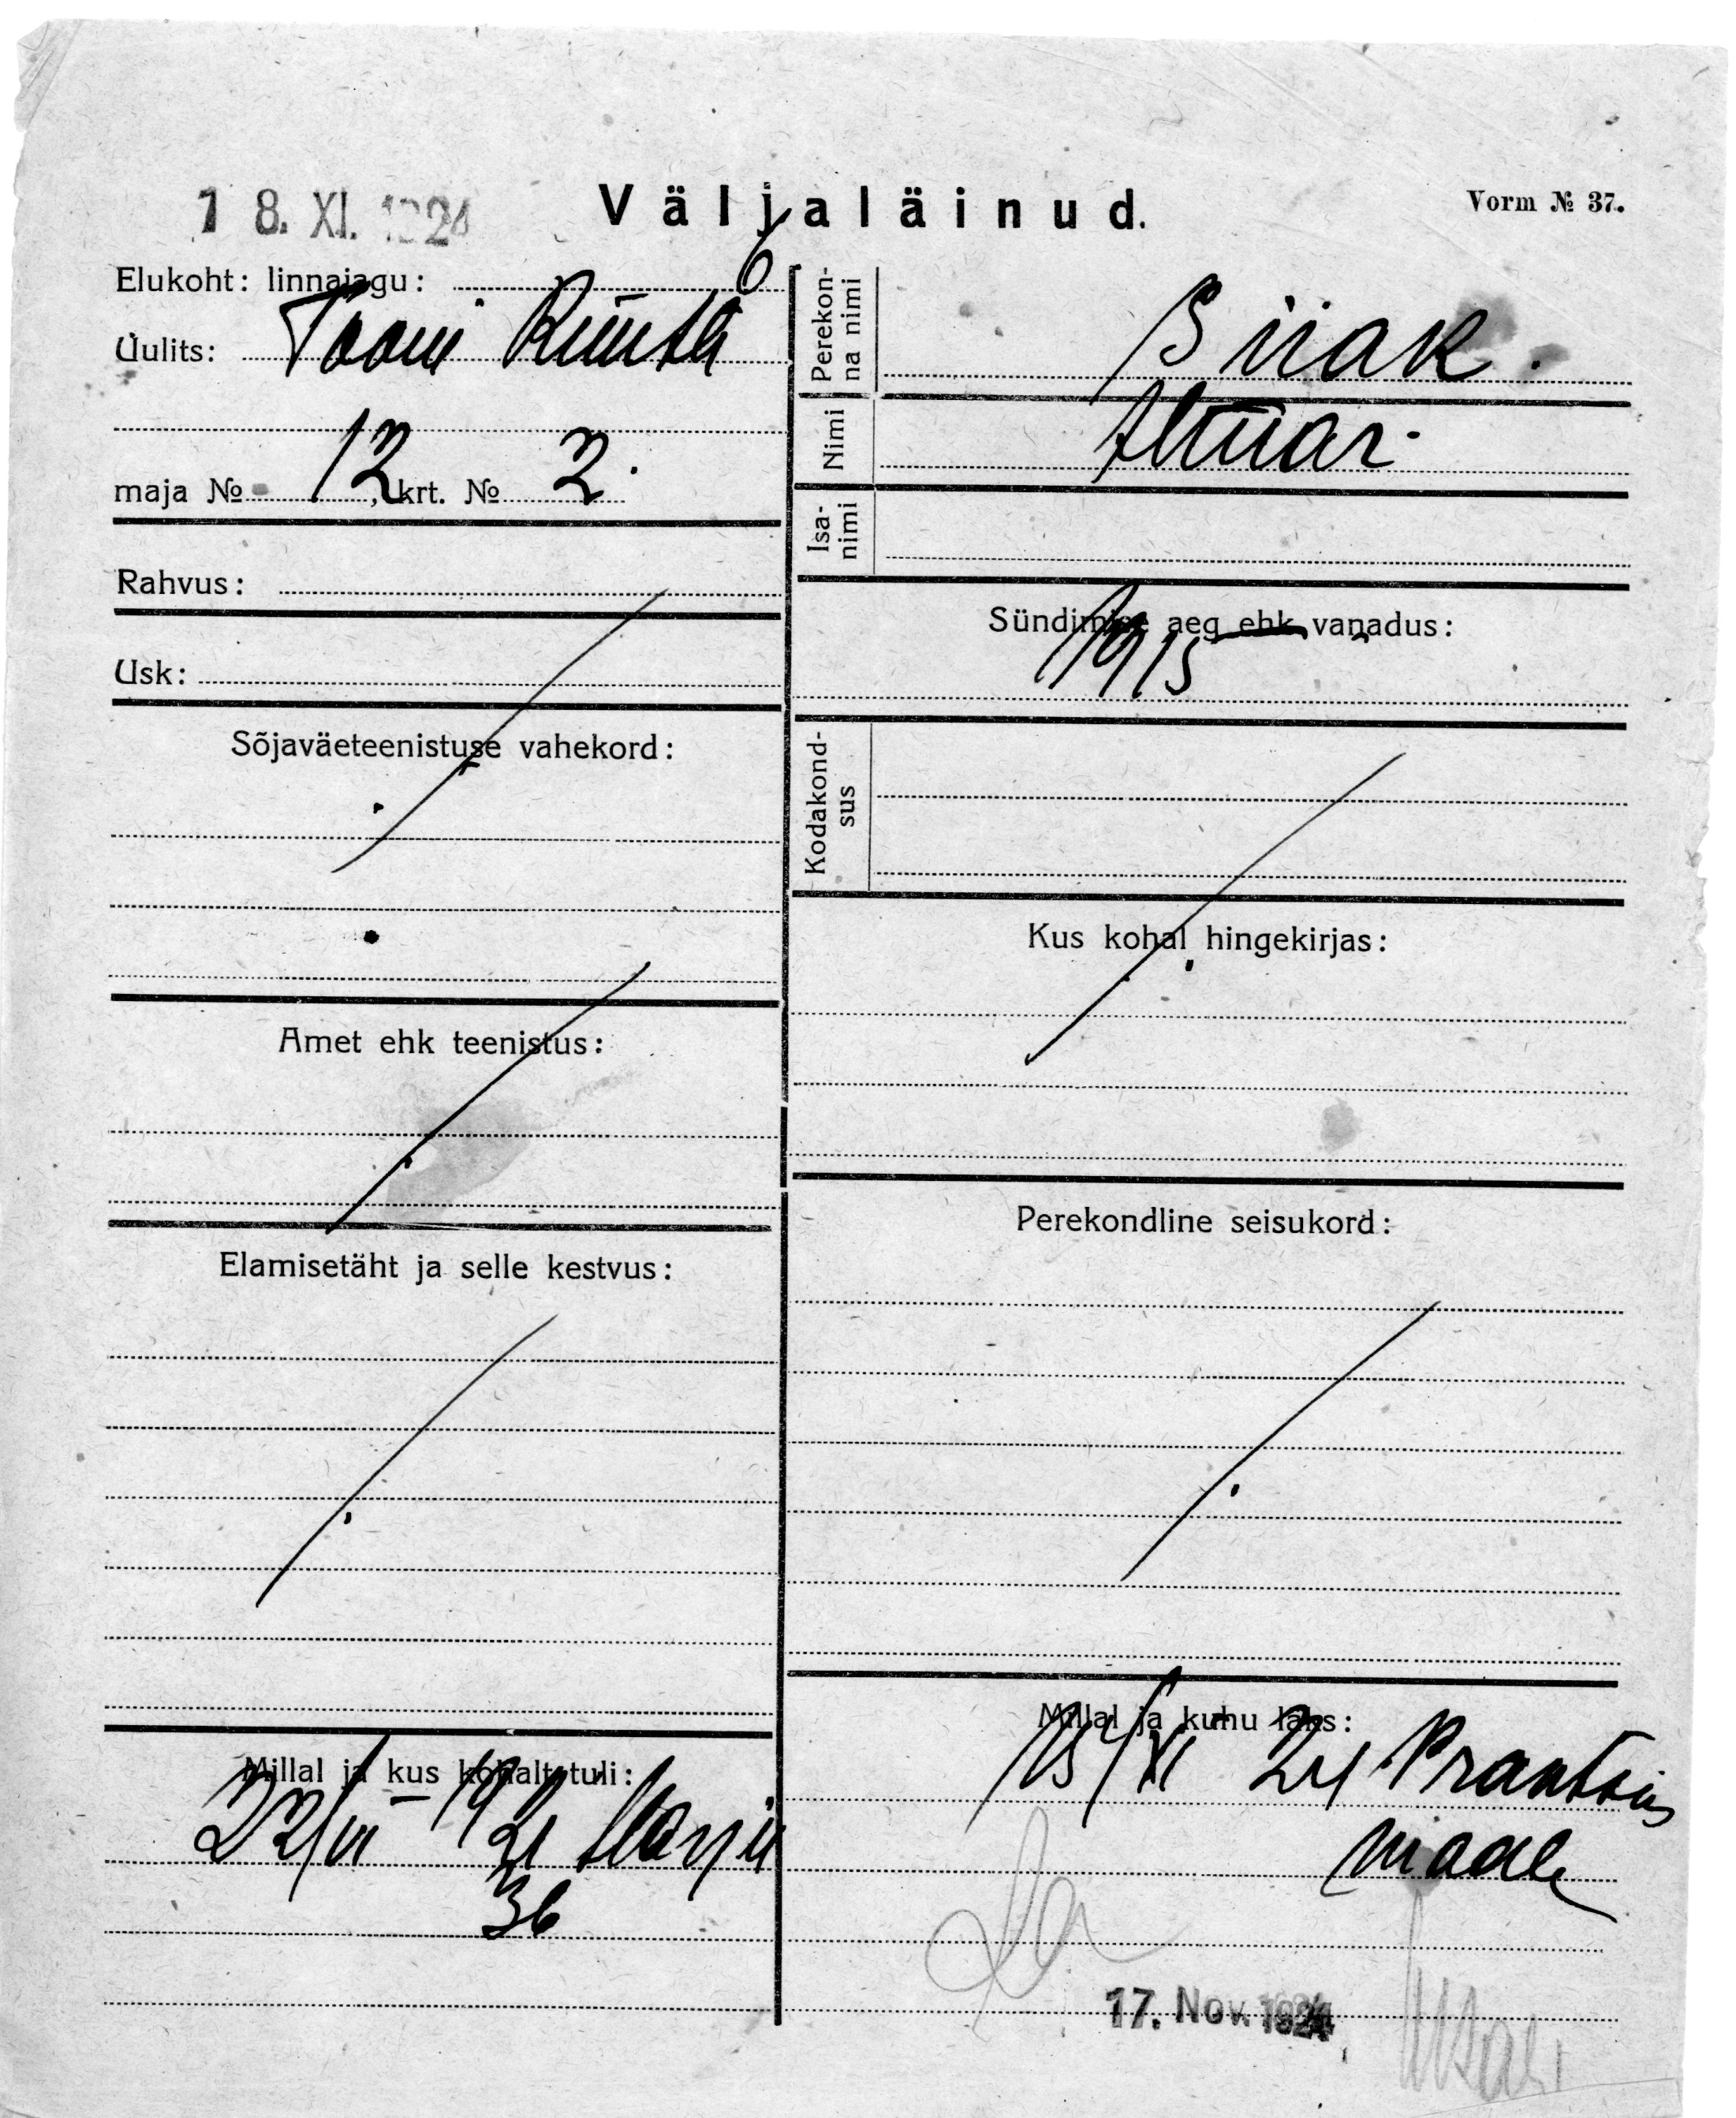 18. XI. 1924
Väljaläinud.
Vorm № 37.
Elukoht: linnajagu: 6
Uulits: Toom Rüütli
maja № 12, krt. № 2.
Rahvus:
Usk:
Sõjaväeteenistuse vahekord:
Amet ehk teenistus:
Elamisetäht ja selle kestvus:
Millal ja kus kohalt tuli:
22/VI 1921 Harju
36
Perekonna nimi
Nimi
Isanimi
Sündimise aeg ehk vanadus:
1915
Kodakondsus
Kus kohal hingekirjas:
Perekondline seisukord:
Millal ja kuhu läks:
15/XI 24 Prantsus
maale
17. Nov. 1924